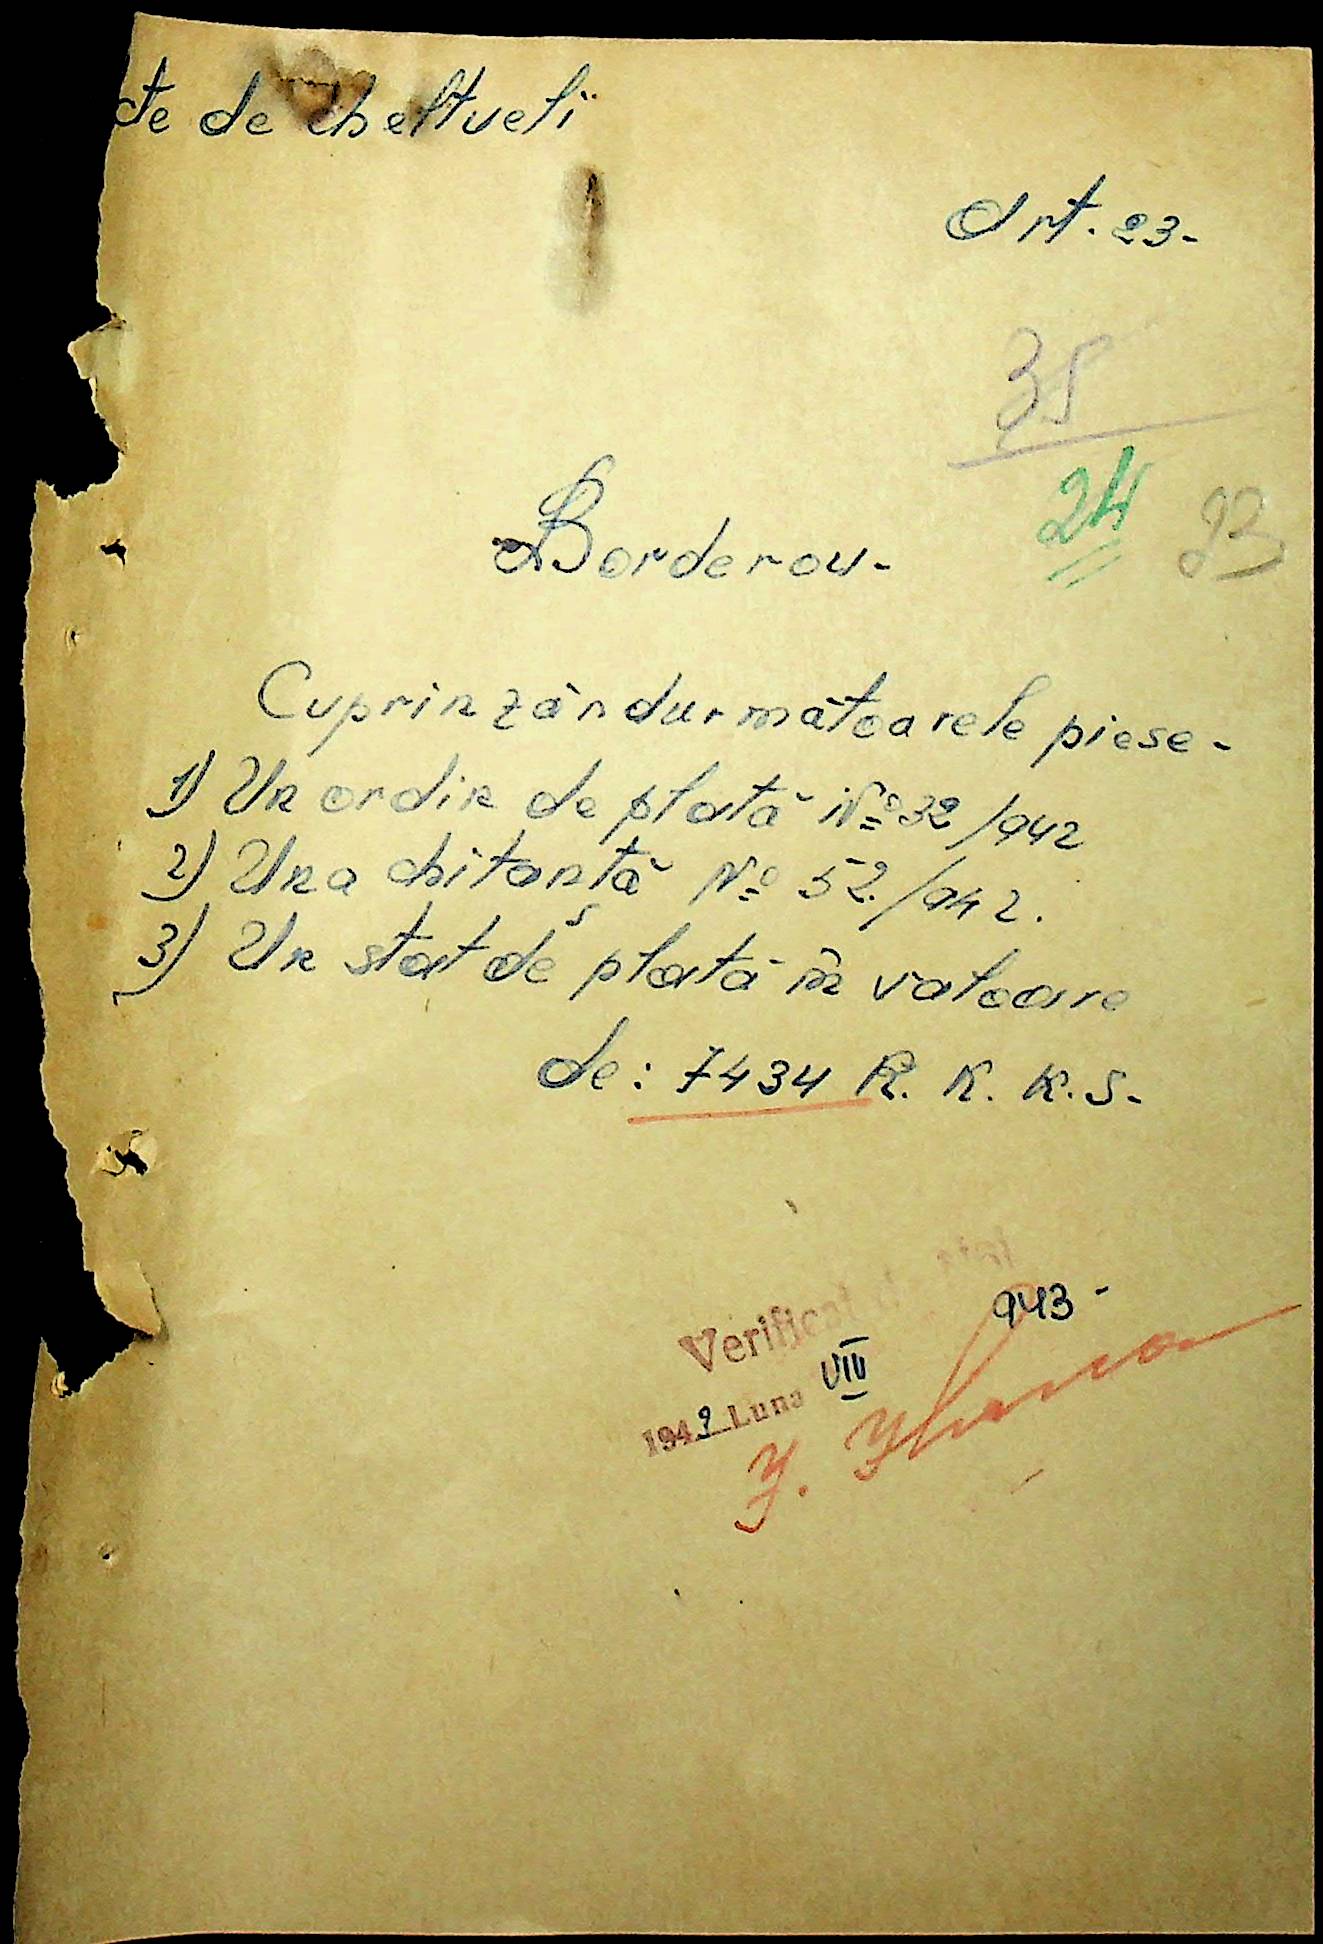 cte de cheltueli
Art. 23-
35
24 23
Borderou-
Cuprinzând următoarele piese-
1) Un ordin de plată Nº 32/942
2) Una chitanță Nº 52./942.
3) Un stat de plată în valoare
de: 7434 R. K. K. S.-
Verificat de
943-
1942 Luna VIII